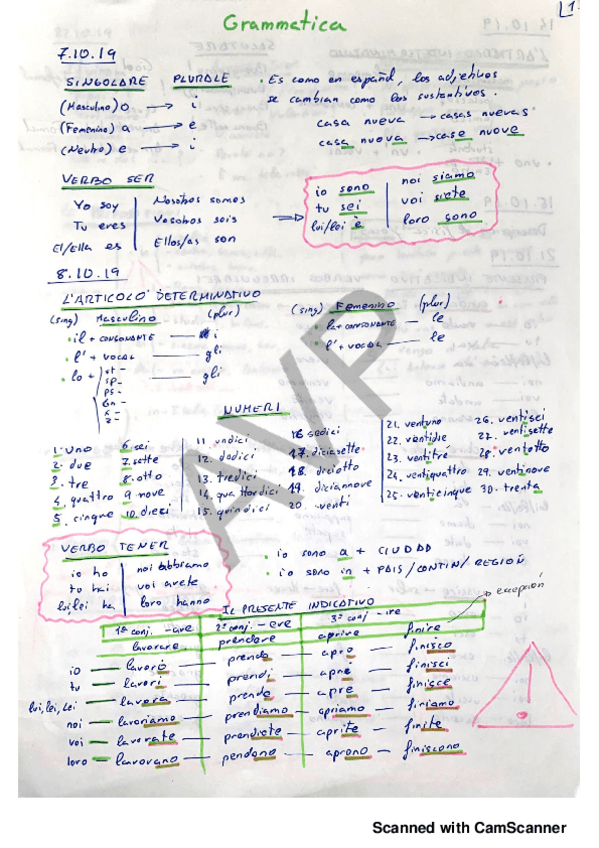 1
Grammatica
7.10.19
SINGOLARE PLURALE
(Masculino) o → i
(Femenino) a → e
(Neutro) e → i
· Es como en español, los adjetivos
se cambian como los sustantivos.
casa nueva → casas nuevas
casa nuova → case nuove
VERBO SER
Yo soy Nosotros somos
Tu eres Vosotros sois
El/ella es Ellos/as son
io sono noi siamo
tu sei voi siete
lui/lei è loro sono
8.10.19
L'ARTICOLO DETERMINATIVO
(sing) Masculino (plur)
· il + CONSONANTE — i
· l' + VOCAL — gli
· lo + — gli
st-
sp-
ps-
gn-
x-
z-
(sing) Femenino (plur)
· la + CONSONANTE — le
· l' + VOCAL — le
NUMERI
1. uno
2. due
3. tre
4. quattro
5. cinque
6. sei
7. sette
8. otto
9. nove
10. dieci
11. undici
12. dodici
13. tredici
14. quattordici
15. quindici
16 sedici
17. diciasette
18. diciotto
19. diciannove
20. venti
21. ventuno
22. ventidue
23. ventitré
24. ventiquattro
25. venticinque
26. ventisei
27. ventisette
28. ventotto
29. ventinove
30. trenta
VERBO TENER
io ho noi abbiamo
tu hai voi avete
lui/lei ha loro hanno
· io sono a + CIUDAD
· io sono in + PAIS/CONTIN/REGIÓN
IL PRESENTE INDICATIVO
excepción
1ª conj. -are 2ª conj. -ere 3ª conj. -ire
lavorare prendere aprire finire
io — lavoro — prendo — apro — finisco
tu — lavori — prendi — apri — finisci
lui, lei, Lei — lavora — prende — apre — finisce
noi — lavoriamo — prendiamo — apriamo — finiamo
voi — lavorate — prendete — aprite — finite
loro — lavorano — pendono — aprono — finiscono
!
AVP
Scanned with CamScanner